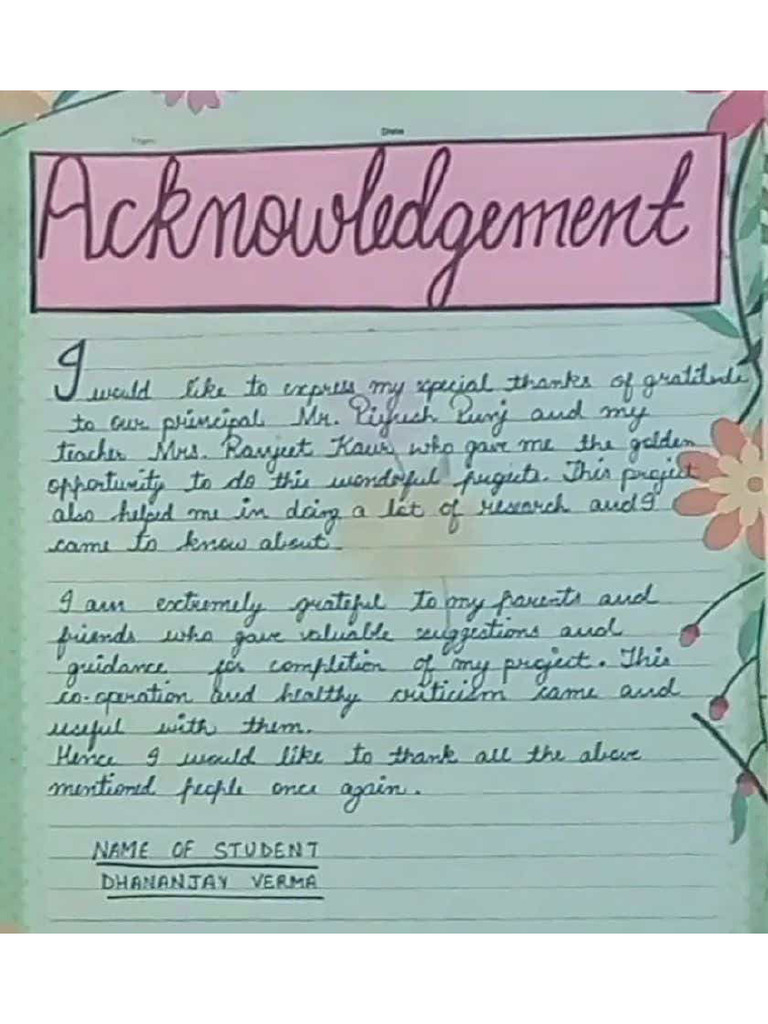 Date
Acknowledgement
I would like to express my special thanks of gratitude
to our principal Mr. Piyush Punj and my
teacher Mrs. Ranjeet Kaur who gave me the golden
opportunity to do this wonderful projects. This project
also helped me in doing a lot of research and I
came to know about
I am extremely grateful to my parents and
friends who gave valuable suggestions and
guidance for completion of my project. This
co-operation and healthy criticism came and
useful with them.
Hence I would like to thank all the above
mentioned people once again.
NAME OF STUDENT
DHANANJAY VERMA